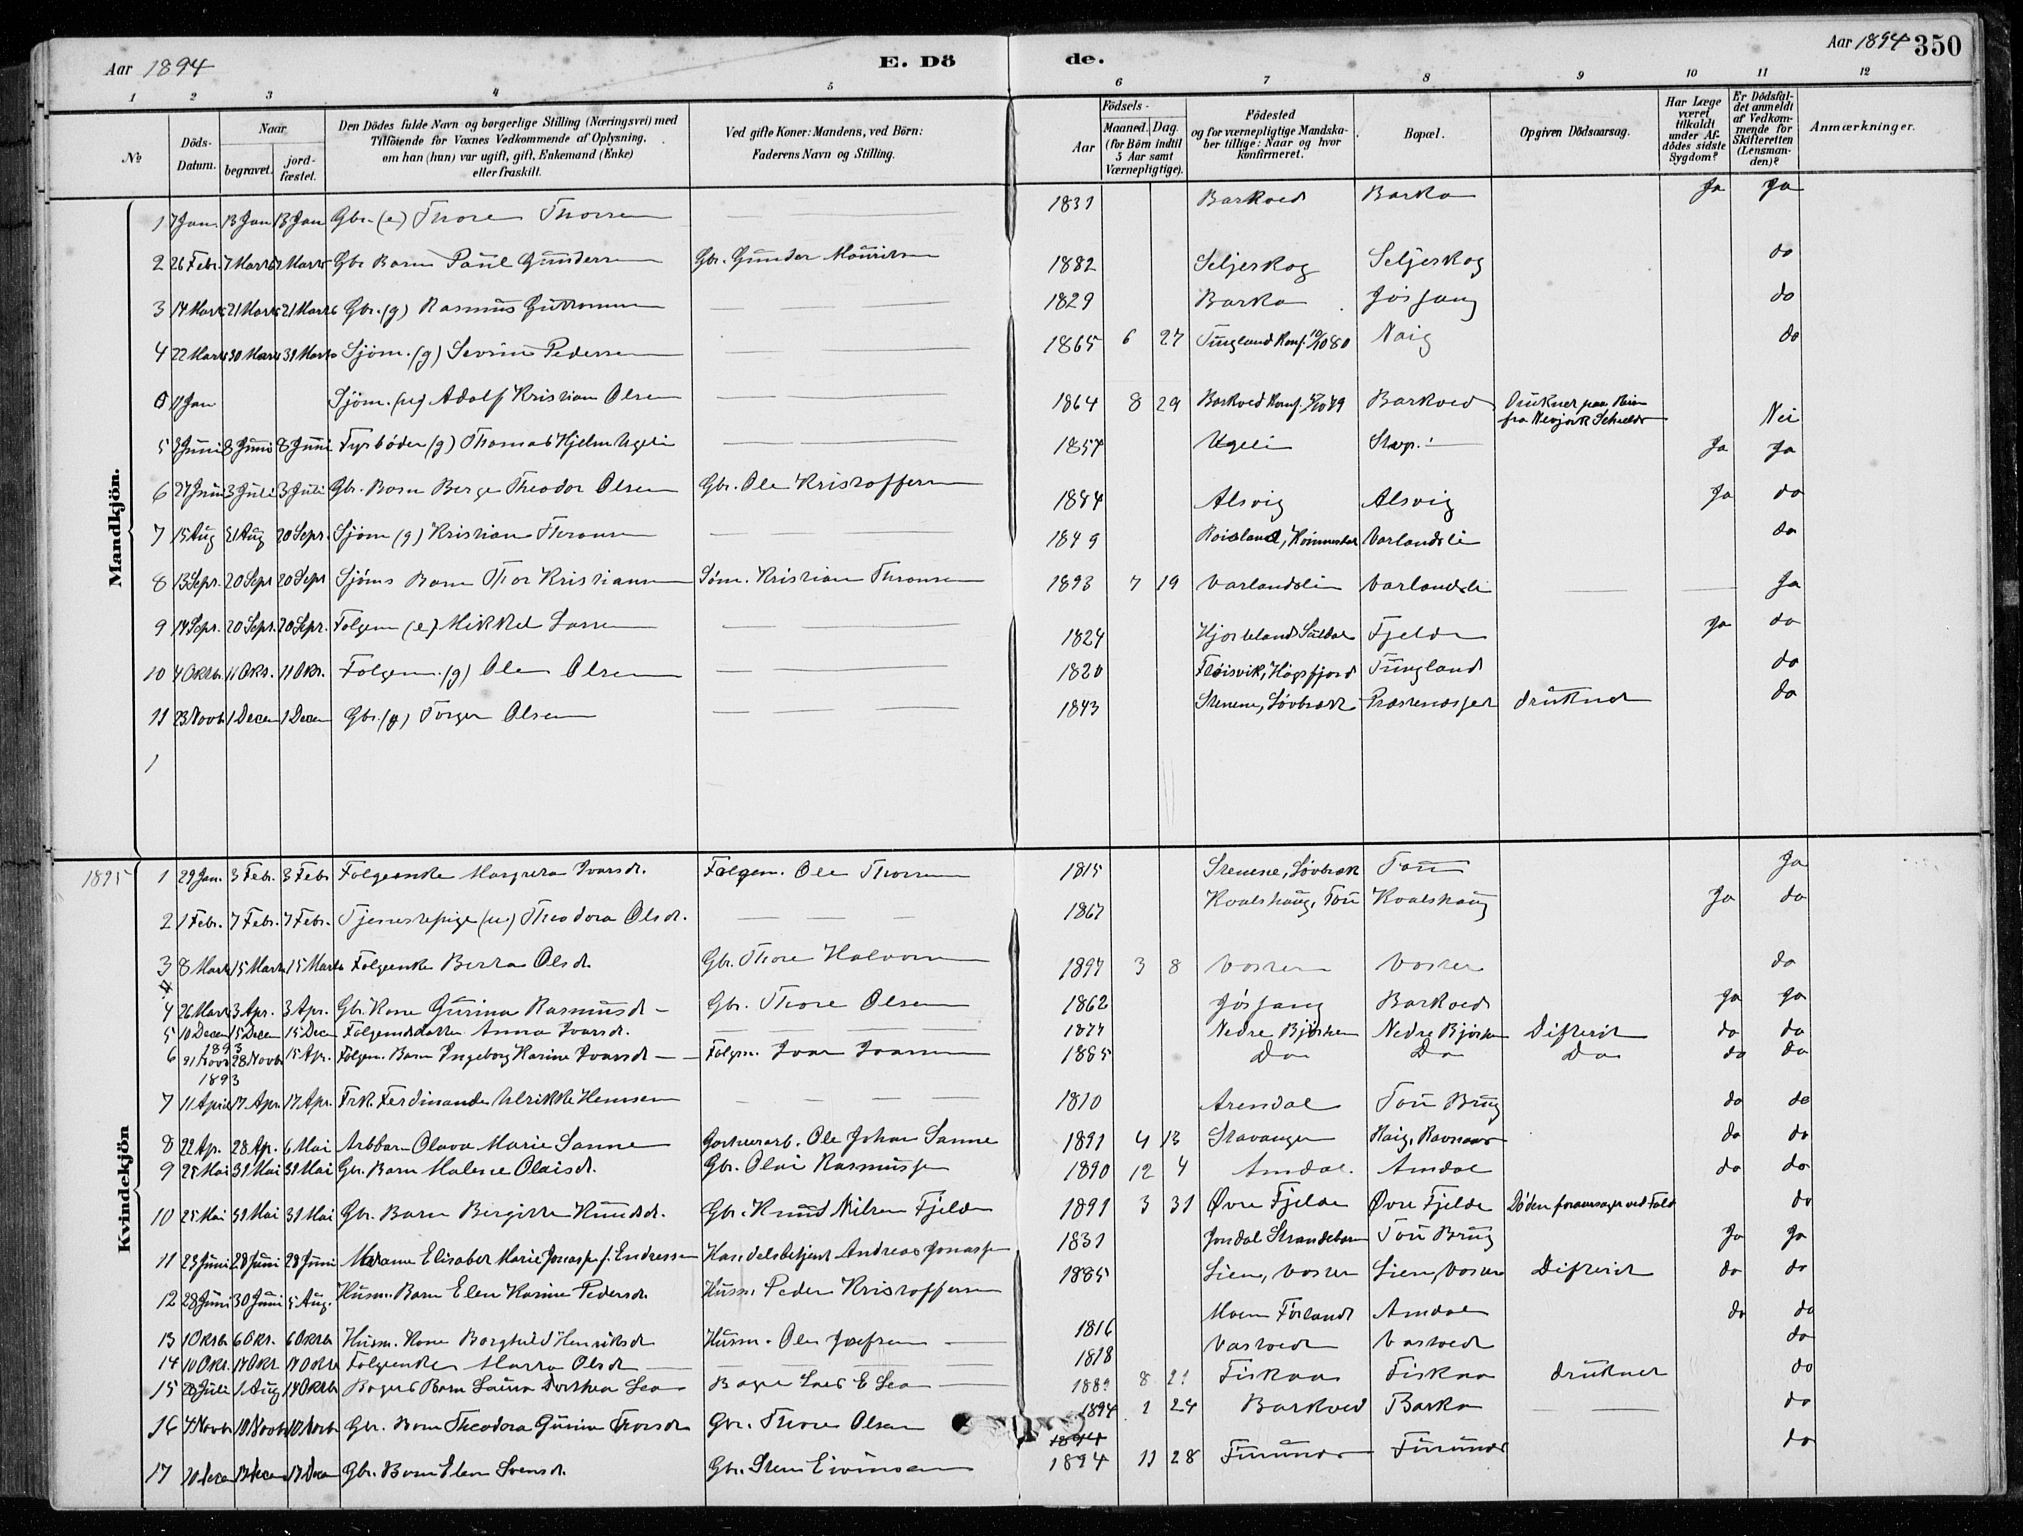 Aar 1894
E. Dö
de.
Aar 1894 350
1 2 3 4 5 6 7 8 9 10 11 12
№
Döds-Datum.
Naar
begravet.
jord-fæstet.
Den Dödes fulde Navn og borgerlige Stilling (Næringsvei) med Tilföiende for Voxnes Vedkommende af Oplysning, om han (hun) var ugift, gift, Enkemand (Enke) eller fraskilt.
Ved gifte Koner: Mandens, ved Börn: Faderens Navn og Stilling.
Födsels-
Aar
Maaned. Dag. (for Börn indtil 5 Aar samt Værnepligtige).
Födested og for værnepligtige Mandskaber tillige: Naar og hvor konfirmeret.
Bopæl.
Opgiven Dödsaarsag.
Har Læge været tilkaldt under Afdödes sidste Sygdom?
Er Dödsfaldet anmeldt af Vedkommende for Skifteretten (Lensmanden)?
Anmærkninger.
Mandkjön.
1 7 Jan. 13 Jan 13 Jan Gbr. (e) Thore Thorsen 1831 Barkved Barka Ja Ja
2 26 Febr. 7 Marts 7 Marts Gbr. Barn Paul Gundersen Gbr. Gunder Mouritsen 1882 Seljeskog Seljeskog do
3 14 Marts 21 Marts 21 Marts Gbr. (g) Rasmus Guttormsen 1829 Barka Jösfang do
4 22 Marts 30 Marts 31 Marts Sjöm. (g) Severin Pedersen 1865 6 27 Tungland Konf. 10/10 80 Naig do
0 11 Jan Sjöm. (u) Adolf Kristian Olsen 1864 8 29 Barkved Konf. 79 Barkved Druknet paa Reise fra Newjork Schields Nei
5 3 Juni 8 Juni 8 Juni Fyrböder (g) Thomas Hjelm Ugeli 1857 Ugeli Stavgr. Ja Ja
6 27 Juni 3 Juli 3 Juli Gbr. Barn Berge Theodor Olsen Gbr. Ole Kristoffersen 1884 Alsvig Alsvig Ja do
7 15 Aug 21 Aug 20 Sept. Sjöm (g) Kristian Thronsen 1849 Varlandsli do
8 13 Sept. 20 Sept 20 Sept Sjöms Barn Thor Kristiansen Söm. Kristian Thronsen 1893 7 19 Varlandsli Varlandsli Ja
9 14 Sept. 20 Sept. 20 Sept. Folgem (e) Mikkel Larsen 1824 Hjorteland Suldal Fjelde Ja do
10 4 Oktb. 11 Okt. 11 Okt. Folgem. (g) Ole Olsen 1820 Flöisvik, Högsfjord Tungland do
11 23 Novb 1 Decem 1 Decem Gbr. (g) Törger Olsen 1843 Stenene, Lövbræk Præstenæsset druknet do
1
Kvindekjön
1895 1 29 Jan. 3 Febr. 3 Febr Folgeenke Margreta Ivarsdt. Folgem. Ole Thorsen 1815 Stenene, Lövbræk Tou Ja
2 1 Febr. 7 Febr. 7 Febr. Tjenestepige (u) Theodora Olsdt. 1867 Kvalshaug, Tou Kvalshaug Ja do
3 8 Marts 15 Marts 15 Marts Folgeenke Berta Olsdt. Gbr. Thore Halvorsen 1894 3 8 Vostre Vostre do
4 26 Marts 3 Apr. 3 Apr. Gbr. Kone Gurina Rasmusdt Gbr. Thore Olsen 1862 Jösfang Barkved Ja Ja
5 10 Decem 1893 15 Decem 15 Decm Folgemdatter Anna Ivarsdt. 1877 Nedre Björheim Nedre Björheim Difterit do do
6 21 Novb 1893 28 Novb 15 Apr. Folgem. Barn Ingeborg Karine Ivarsdt Folgm. Ivar Ivarsen 1885 Do Do Do do do
7 11 April 17 Apr. 17 Apr. Frk. Ferdinande Ulrikke Hemsen 1810 Arendal Tou Brug do do
8 22 Apr. 28 Apr. 6 Mai Arbbarn Olava Marie Sanne Ole Johan Sanne 1891 4 13 Stavanger do do
9 25 Mai 31 Mai 31 Mai Gbr. Barn Malene Olaisdt. Gbr. Olai Rasmussen 1890 12 4 Amdal. Amdal do do
10 25 Mai 31 Mai 31 Mai Gbr. Barn Bergitte Knudsdt. Gbr. Knud Nilsen Fjelde 1891 3 31 Övre Fjelde Övre Fjelde Döden foraarsaget ved Fald do
11 23 Juni 28 Juni 28 Juni Madame Elisabet Marie Jonassen f. Endressen Handelsbetjent Andreas Jonassen 1831 Jondal Strandebarm Tou Brug Ja Ja
12 28 Juni 30 Juni 5 Aug. Husm. Barn Elen Karine Pedersdt. Husm. Peder Kristoffersen 1885 Lien, Vostre Lien, Vostre Difterit do do
13 1 Oktb 6 Okt. 6 Oktb Husm. Kone Borghild Henriksdt Husm. Ole Josefsen 1816 Moen Förland Amdal do do
14 10 Okt. 17 Okt 17 Oktb Folgeenke Marta Olsdt 1818 Vastvedt Vastvedt do
15 28 Juli 1 Aug 14 Oktb Bagers Barn Laura Dorthea Lea Bager Lars E Lea 1889 8 21 Fiskaa Fiskaa druknet do
16 4 Novb 10 Novb 10 Novb Gbr. Barn Theodora Gurine Thorsdt Gbr. Thore Olsen 1894 1 24 Barkved Barka do
1894
17 Gbr. Barn Elen Svensdt. Gbr. Sven Eivindsen 1894 11 28 Furunes Furunes do